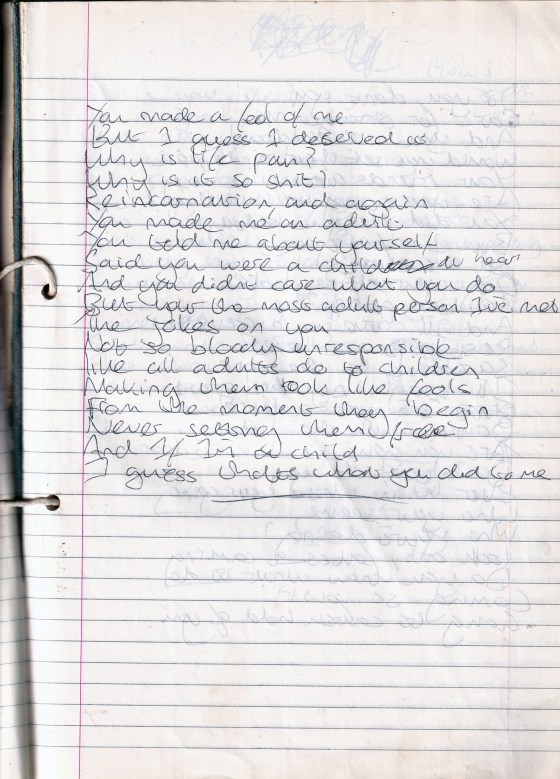 You made a fool of me
But I guess I deserved it
Why is life pain?
Why is it so shit?
Reincarnation and again
You made me an adult
You told me about yourself
Said you were a child at heart
And you didnt care what you do
But your the most adult person I've met
The jokes on you
Not so bloody irresponsible
like all adults do to children
Making them look like fools
From the moment they begin
Never setting them free
And If I'm a child
I guess thats what you did to me